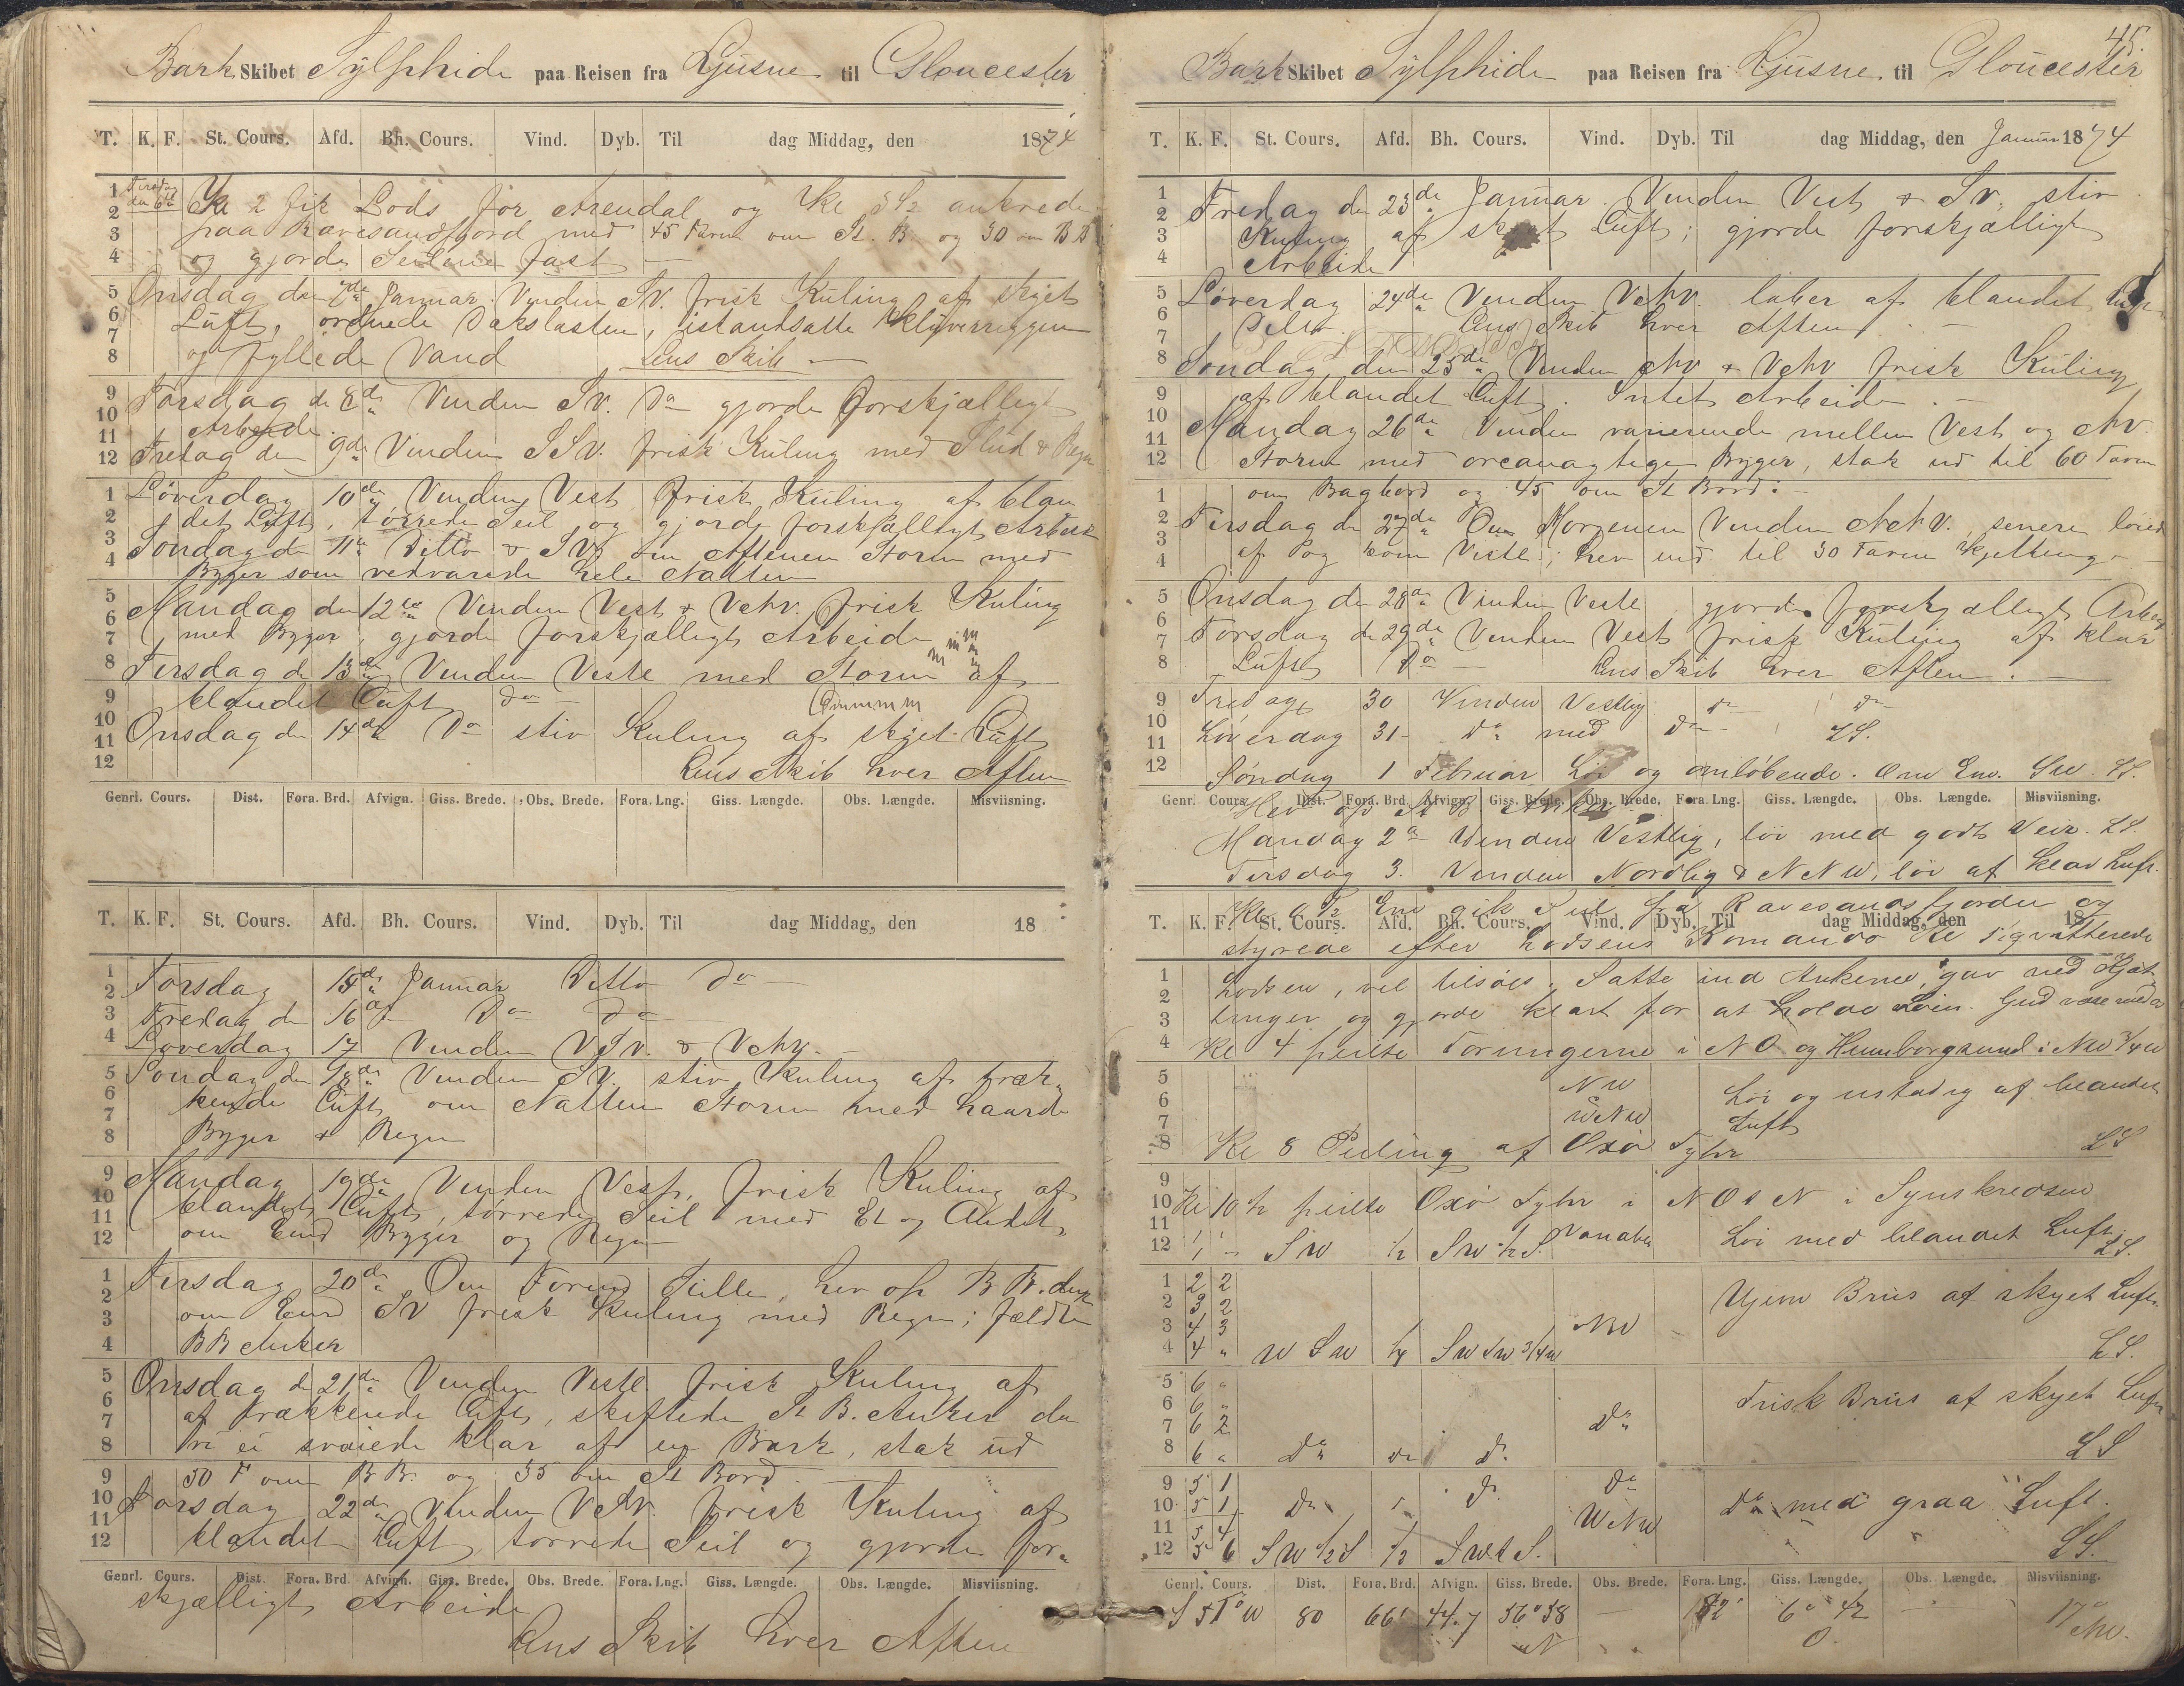 Bark Skibet Sylphide paa Reisen fra Ljusne til Gloucester
T. K. F. St. Cours. Afd. Bh. Cours. Vind. Dyb. Til dag Middag, den 1874
Tirsdag den 6te Kl 2 fik Lods for Arendal og Kl 3 1/2 ankrede
paa Ravesandfjord med 45 Favne om St. B. og 30 om BB
og gjorde Seilene fast
Onsdag den 7de Januar. Vinden SV. frisk Kuling af skyet
Luft, ordnede Dækslasten, istandsatte Klüverriggen
og fyllede Vand Lens Skib
Torsdag d 8de Vinden SV. Do gjorde forskjælligt
Arbeide.
Fredag den 9de Vinden SSV. frisk Kuling med Slud & Regn
Løverdag 10de Vinden Vest, frisk Kuling af blan
det Luft, tørrede Seil og gjorde forskjælligt Arbeide
Søndag d 11te Ditto & SV, om Aftenen Storm med
Byger som vedvarede hele Natten
Mandag den 12te Vinden Vest & VNV. frisk Kuling
med Byger, gjorde forskjælligt Arbeide
Tirsdag d 13de Vinden Vestl med Storm af
blandet Luft do
Onsdag d 14de Do stiv Kuling af skyet Luft
Lens Skib hver Aften
Genrl. Cours. Dist. Fora. Brd. Afvign. Giss. Brede. Obs. Brede. Fora. Lng. Giss. Længde. Obs. Længde. Misviisning.
T. K. F. St. Cours. Afd. Bh. Cours. Vind. Dyb. Til dag Middag, den 18
Torsdag 15de Januar Ditto do
Fredag d 16de Do do
Løverdag 17 Vinden VSV. & VNV.
Søndag den 18de Vinden SV. stiv Kuling af træk-
kende Luft, om Natten Storm med haarde
Byger & Regn
Mandag 19de Vinden Vest, frisk Kuling af
blandet Luft, tørrede Seil med Et og Andet,
om Emd Byger og Regn
Tirsdag 20de Om Formd Stille, hev op BB. do
om Emd SV frisk Kuling med Regn; fældte
BB Anker
Onsdag d 21de Vinden Vestl frisk Kuling af
af trækkende Luft, skiftede St B. Anker da
vi ei svaiede klar af en Bark, stak ud
50 F om BB. og 35 om St Bord
Torsdag 22de Vinden VNV. frisk Kuling af
blandet Luft, tørrede Seil og gjorde for-
Genrl. Cours. Dist. Fora. Brd. Afvign. Giss. Brede. Obs. Brede. Fora. Lng. Giss. Længde. Obs. Længde. Misviisning.
skjælligt Arbeide
Lens Skib hver Aften
45.
Bark Skibet Sylphide paa Reisen fra Ljusne til Gloucester
T. K. F. St. Cours. Afd. Bh. Cours. Vind. Dyb. Til dag Middag, den Januar 1874
Fredag den 23de Januar. Vinden Vest & SV. stiv
Kuling af skyet Luft; gjorde forskjælligt
Arbeide
Løverdag 24de Vinden VNV. laber af blandet Luft
Lens Skib hver Aften
Søndag den 25de Vinden NV & VNV frisk Kuling
af blandet Luft. Intet Arbeide.
Mandag 26de Vinden varierende mellem Vest og NV.
Storm med orcanagtige Byger, stak ud til 60 Favne
om Bagbord og 45 om St Bord.
Tirsdag d 27de Om Morgenen Vinden NNV. senere løiede
af og kom Vestl; hev ind til 30 Favne Kjetting
Onsdag d 28de Vinden Vestl gjorde forskjælligt Arbeide
Torsdag d 29de Vinden Vest frisk Kuling af klar
Luft Do Lens Skib hver Aften.
Fredag 30 Vinden Vestlig do do
Løverdag 31 do med do LS.
Søndag 1 Februar Løi og omløbende. Om Em. SW. LS.
Genrl. Cours. Dist. Fora. Brd. Afvign. Giss. Brede. Obs. Brede. Fora. Lng. Giss. Længde. Obs. Længde. Misviisning.
Hev op St B Anker
Mandag 2 Vinden Vestlig, løi med godt Veir. LS.
Tirsdag 3. Vinden Nordlig & NNW, løi af klar Luft.
T. K. F. St. Cours. Afd. Bh. Cours. Vind. Dyb. Til dag Middag, den 18
Em gik Seil fra Ravesandsfjorden og
styrede efter Lodsens Komando Kl 1 qvitterede
Lodsen, vel tilsøes. Satte ind Ankerne, gav ned Kjæt
tinger og gjorde klart for at holde Søen. Gud være med os
Kl 4 peilte Torungerne i NO og Homborgsund i NW 3/4 W
NW Løi og ustadig af blandet
WNW Luft
Kl 8 Peiling af Oxø Fyhr LS
Kl 10 1/2 peilte Oxø Fyhr i NOtN i Synskredsen
1 " SW 1/2 SW 1/2 S. Variabel Løi med blandet Luft LS.
1 2 2 Ujevn Bris af skyet Luft.
2 3 2
3 4 3 NW
4 4 " WSW 1/4 SWtW 3/4 W LS.
5 6 " Frisk Bris af skyet Luft
6 6 "
7 6 2 do
8 6 " do do do LS
9 5 1 do
10 5 1 do do do med graa Luft.
11 5 4 WNW
12 5 6 SW 1/2 S 1/2 SWtS. LS.
Genrl. Cours. Dist. Fora. Brd. Afvign. Giss. Brede. Obs. Brede. Fora. Lng. Giss. Længde. Obs. Længde. Misviisning.
80 66' 44.7 56° 58 N 82' 6° 42 O. 17° NW.